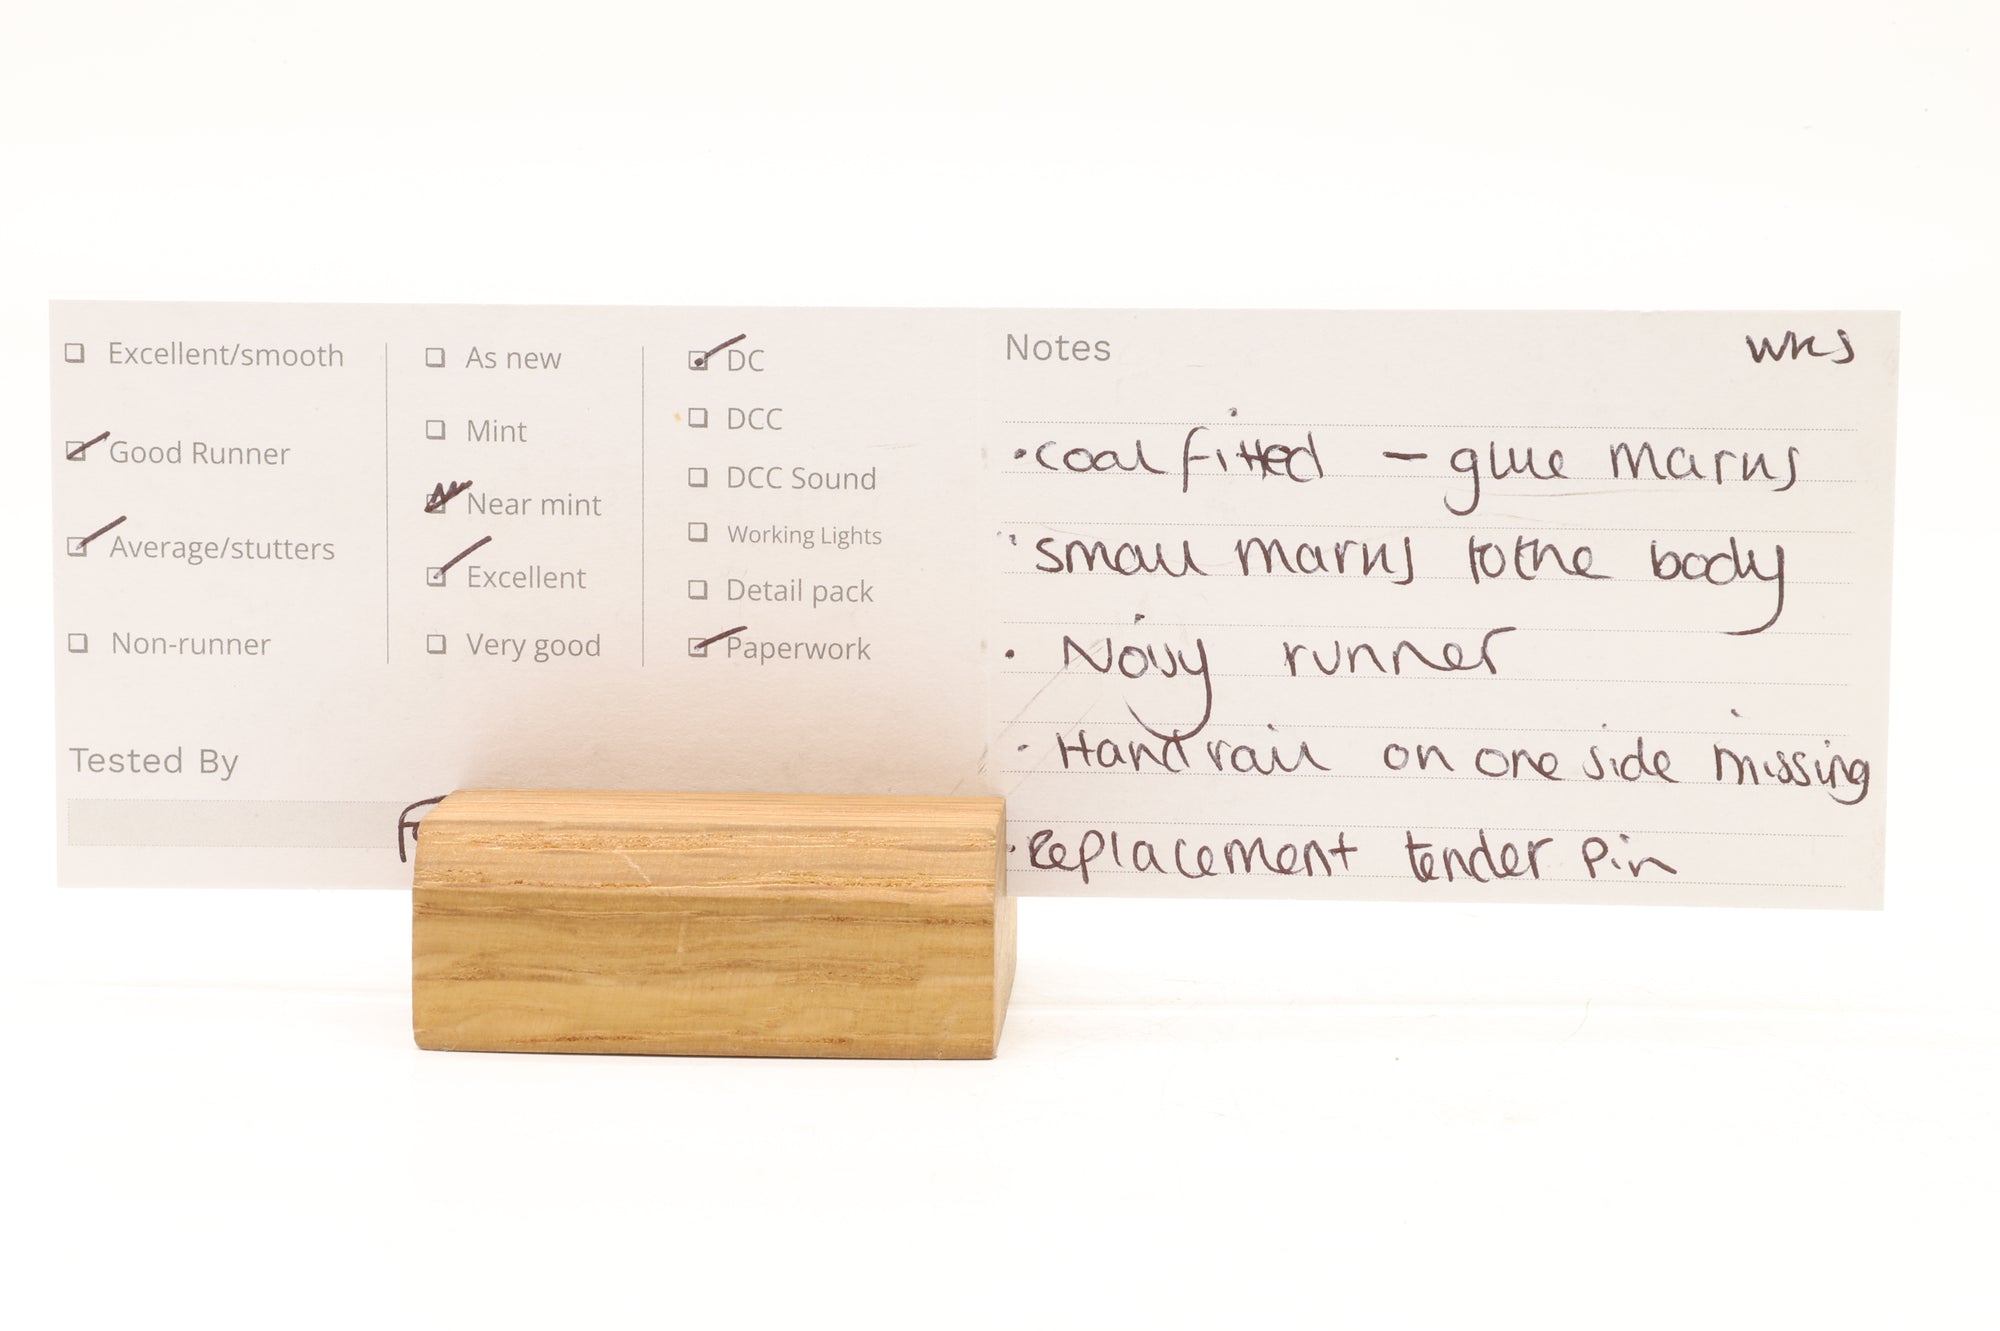 Excellent/smooth
Good Runner
Average/stutters
Non-runner
As new
Mint
Near mint
Excellent
Very good
DC
DCC
DCC Sound
Working Lights
Detail pack
Paperwork
Tested By
Notes
WKS
• coal fitted - glue marks
• small marks to the body
• Noisy runner
• Handrail on one side missing
• Replacement tender pin